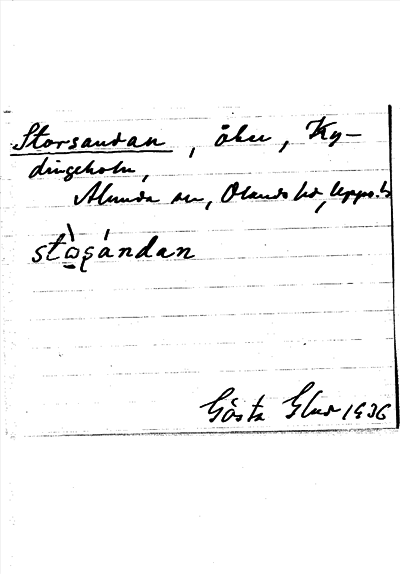 Storsandan, åker, Ky-
dingeholm,
Alunda sn, Olands hd, Upps. l.
stò̱ʂándan
Gösta Glud 1936